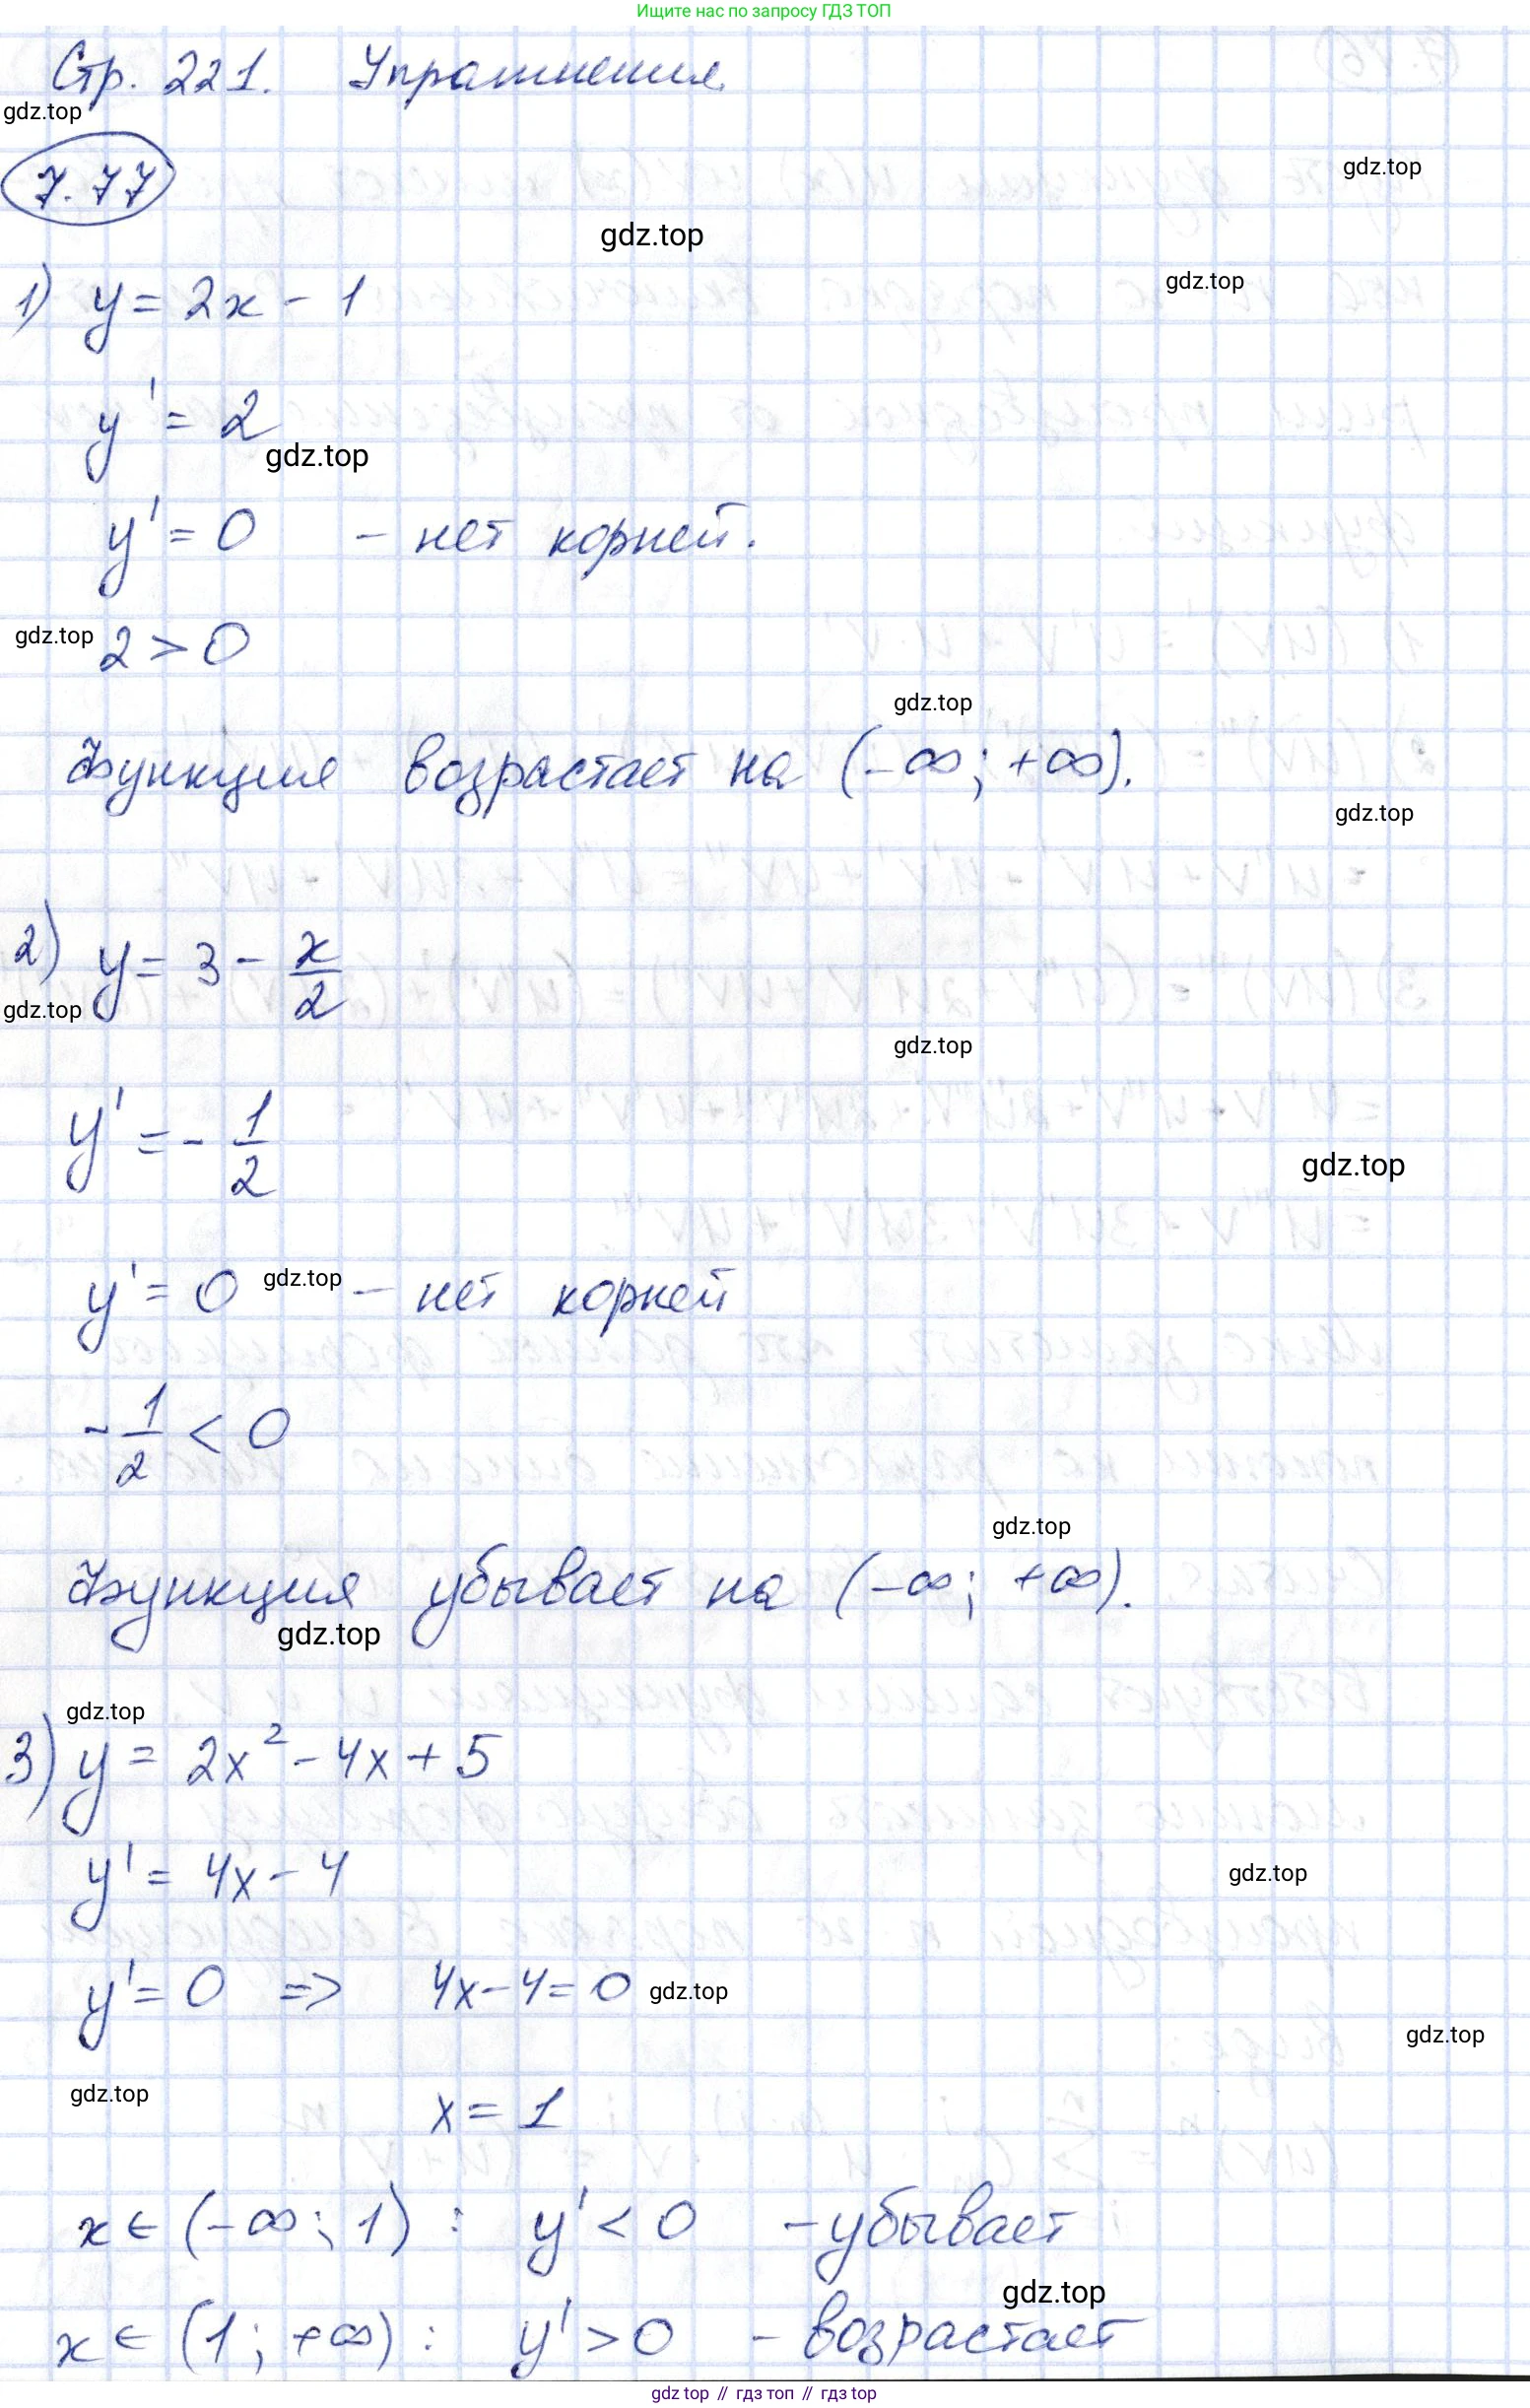 Ищите нас по запросу ГДЗ ТОП
Стр. 221. Упражнения.
gdz.top
7.77
gdz.top
gdz.top
1) y = 2x - 1
gdz.top
y' = 2
gdz.top
y' = 0 - нет корней.
gdz.top
2 > 0
gdz.top
Функция возрастает на (-∞; +∞).
gdz.top
2) y = 3 - x/2
gdz.top
gdz.top
y' = - 1/2
gdz.top
y' = 0 gdz.top - нет корней
- 1/2 < 0
gdz.top
Функция убывает на (-∞; +∞).
gdz.top
gdz.top
3) y = 2x² - 4x + 5
y' = 4x - 4
gdz.top
y' = 0 => 4x - 4 = 0 gdz.top
gdz.top
gdz.top
x = 1
x ∈ (-∞; 1) : y' < 0 - убывает
gdz.top
x ∈ (1; +∞) : y' > 0 - возрастает
gdz top // гдз топ // гдз top